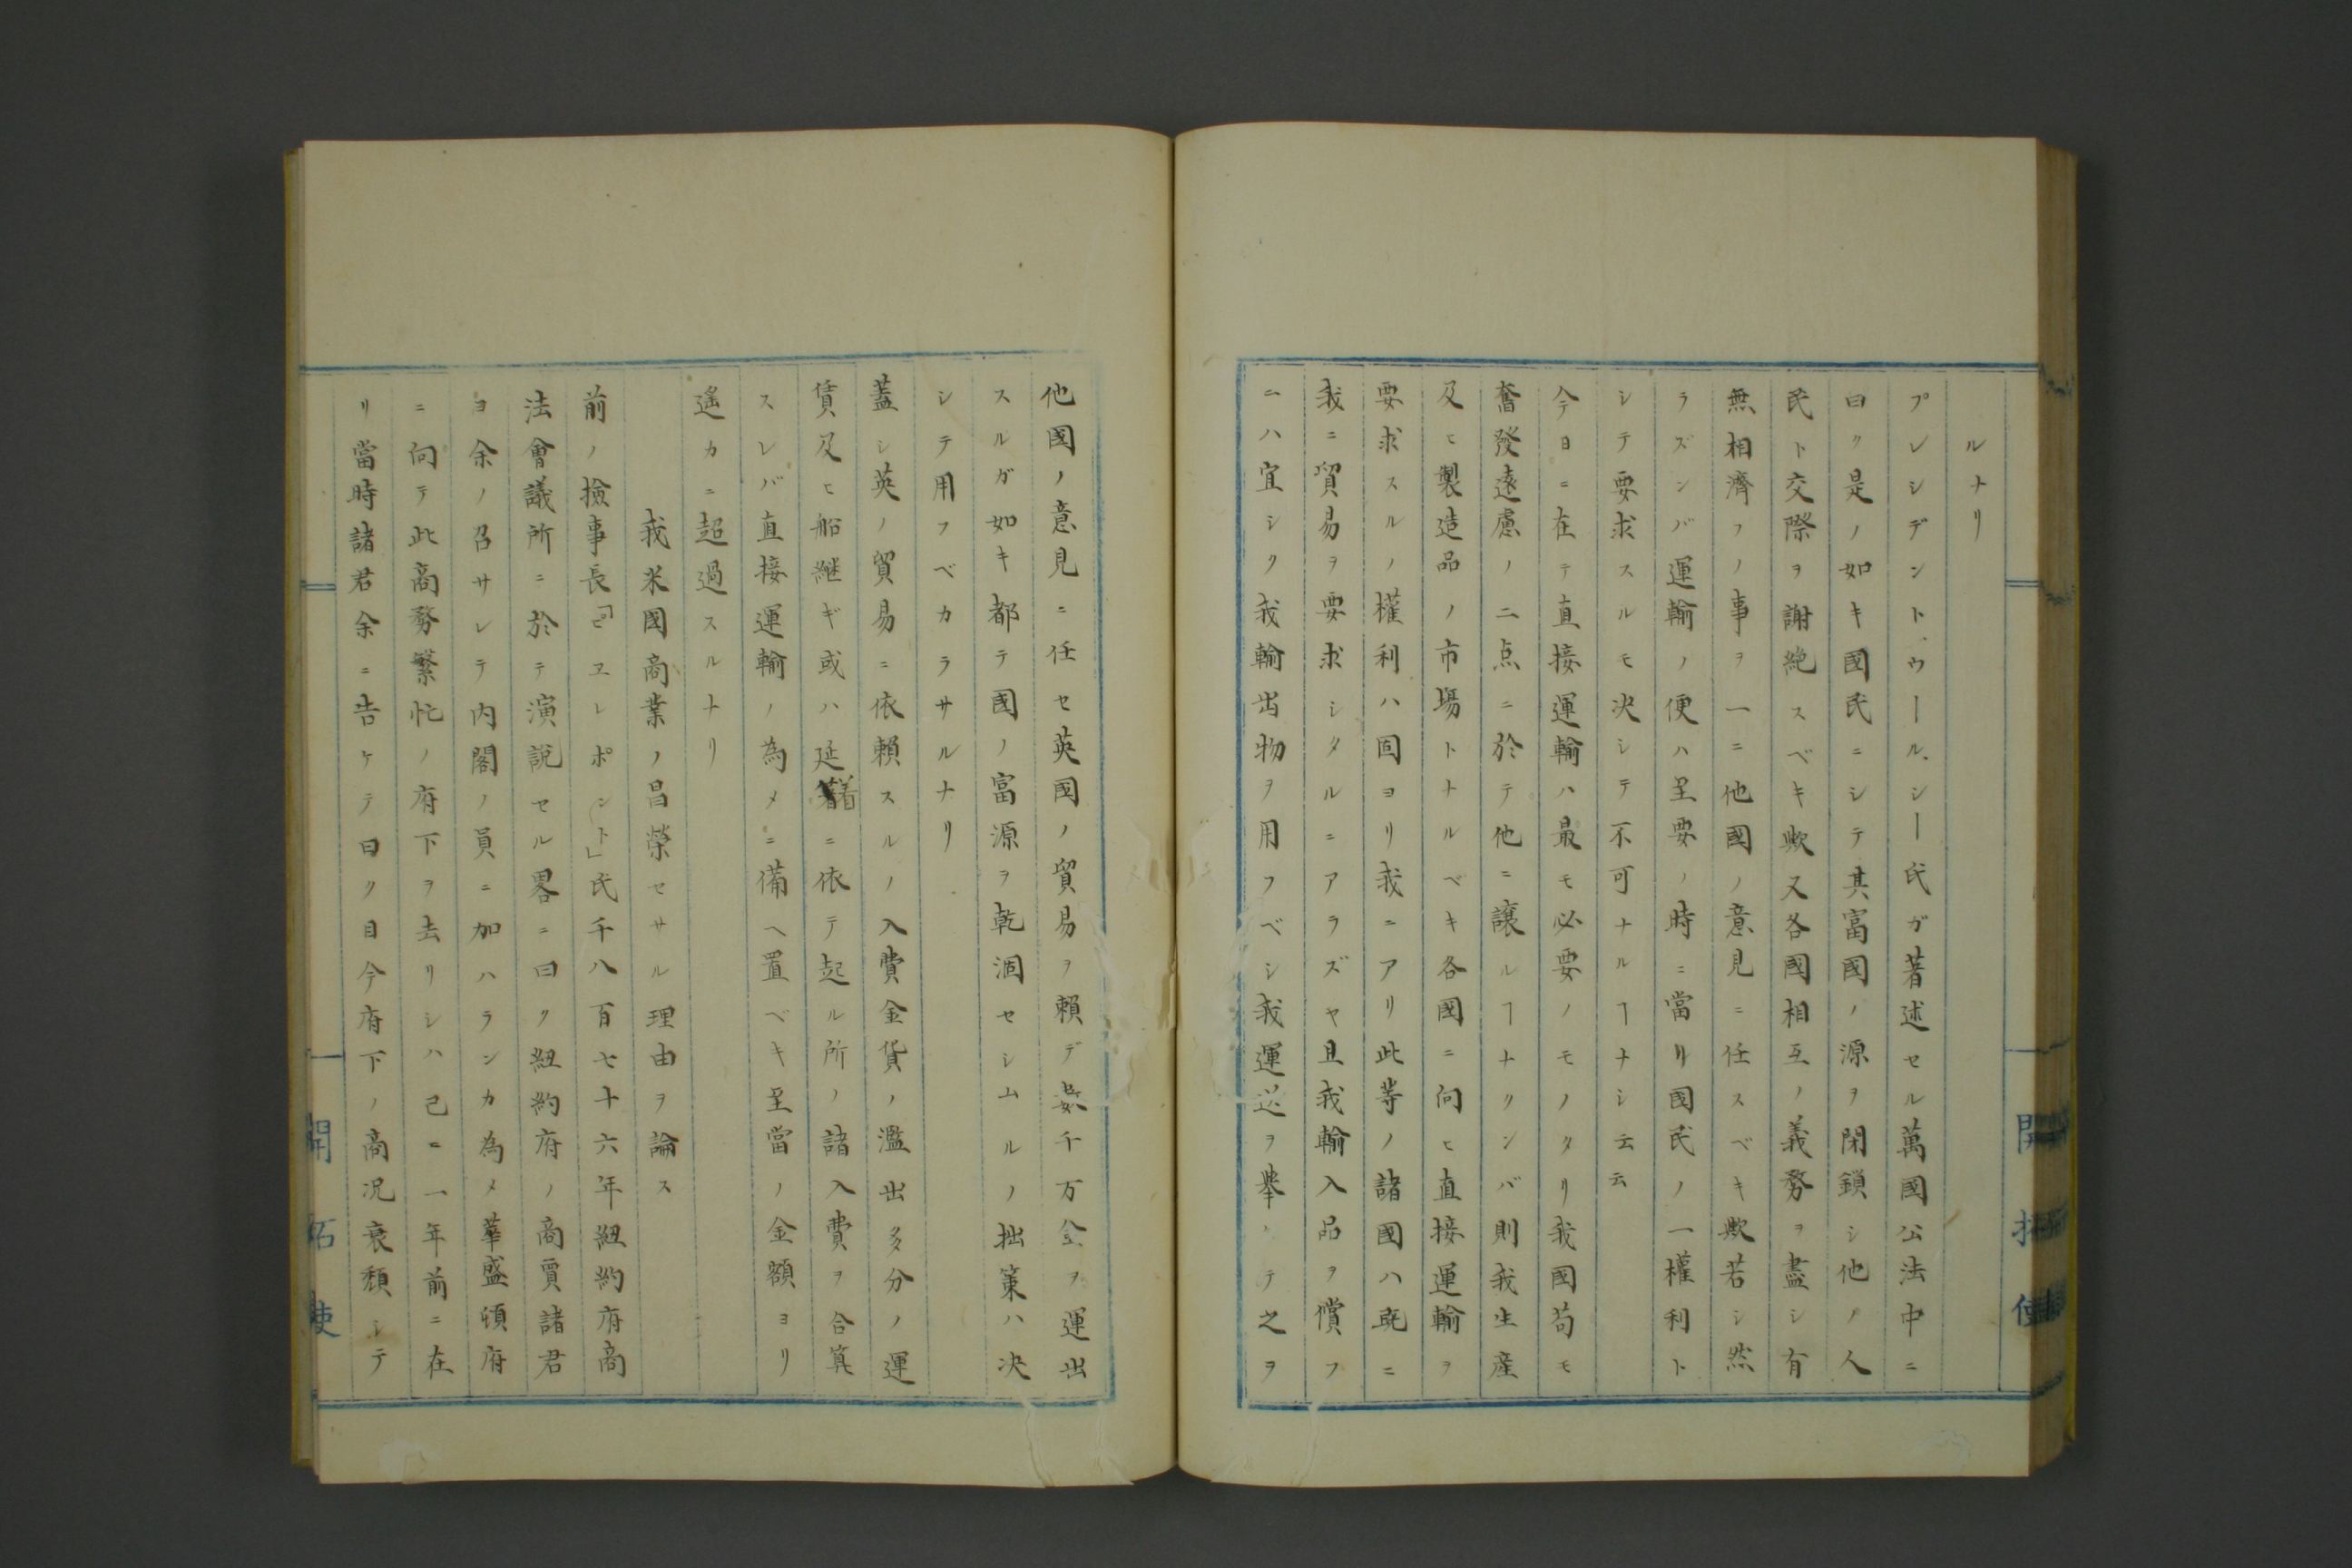 ルナリ
プレシデント、ウール、シー氏ガ著述セル萬國公法中ニ
曰ク是ノ如キ國民ニシテ其富國ノ源ヲ閉鎖シ他ノ人
民ト交際ヲ謝絶スベキ歟又各國相互ノ義務ヲ盡シ有
無相濟フノ事ヲ一ニ他國ノ意見ニ任スベキ歟若シ然
ラズンバ運輸ノ便ハ至要ノ時ニ當リ國民ノ一權利ト
シテ要求スルモ决シテ不可ナルヿナシ云云
今日ニ在テ直接運輸ハ最モ必要ノモノタリ我國苟モ
奮發遠慮ノ二点ニ於テ他ニ譲ルヿナクンバ則我生産
及ヒ製造品ノ市場トナルベキ各國ニ向ヒ直接運輸ヲ
要求スルノ權利ハ固ヨリ我ニアリ此等ノ諸國ハ既ニ
我ニ貿易ヲ要求シタルニアラズヤ且我輸入品ヲ償フ
ニハ宜シク我輸出物ヲ用フベシ我運送ヲ擧ケテ之ヲ
開拓使
他國ノ意見ニ任セ英國ノ貿易ヲ頼デ幾千万金ヲ運出
スルガ如キ都テ國ノ富源ヲ乾涸セシムルノ拙策ハ决
シテ用フベカラサルナリ
蓋シ英ノ貿易ニ依頼スルノ入費金貨ノ濫出多分ノ運
賃及ヒ船継ギ或ハ延着ニ依テ起ル所ノ諸入費ヲ合算
スレバ直接運輸ノ為メニ備ヘ置ベキ至當ノ金額ヨリ
遙カニ超過スルナリ
我米國商業ノ昌榮セサル理由ヲ論ス
前ノ撿事長「ピエレポント」氏千八百七十六年紐約府商
法會議所ニ於テ演説セル畧ニ曰ク紐約府ノ商賈諸君
ヨ余ノ召サレテ内閣ノ員ニ加ハランカ為メ華盛頓府
ニ向テ此商務繁忙ノ府下ヲ去リシハ已ニ一年前ニ在
リ當時諸君余ニ告ケテ曰ク目今府下ノ商况衰頽シテ
開拓使